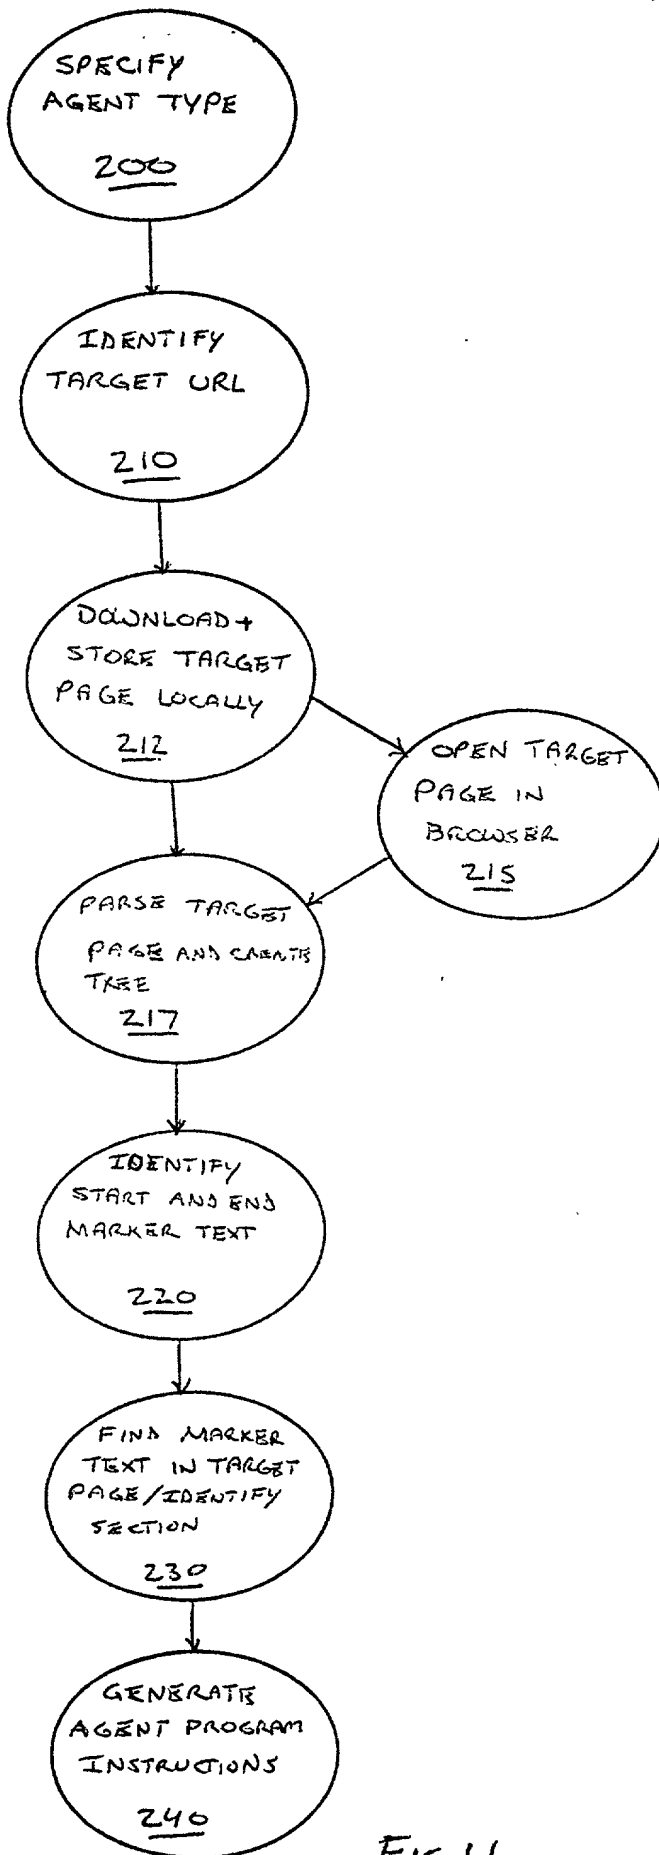 SPECIFY
AGENT TYPE
200
IDENTIFY
TARGET URL
210
DOWNLOAD +
STORE TARGET
PAGE LOCALLY
212
OPEN TARGET
PAGE IN
BROWSER
215
PARSE TARGET
PAGE AND CREATE
TREE
217
IDENTIFY
START AND END
MARKER TEXT
220
FIND MARKER
TEXT IN TARGET
PAGE/IDENTIFY
SECTION
230
GENERATE
AGENT PROGRAM
INSTRUCTIONS
240